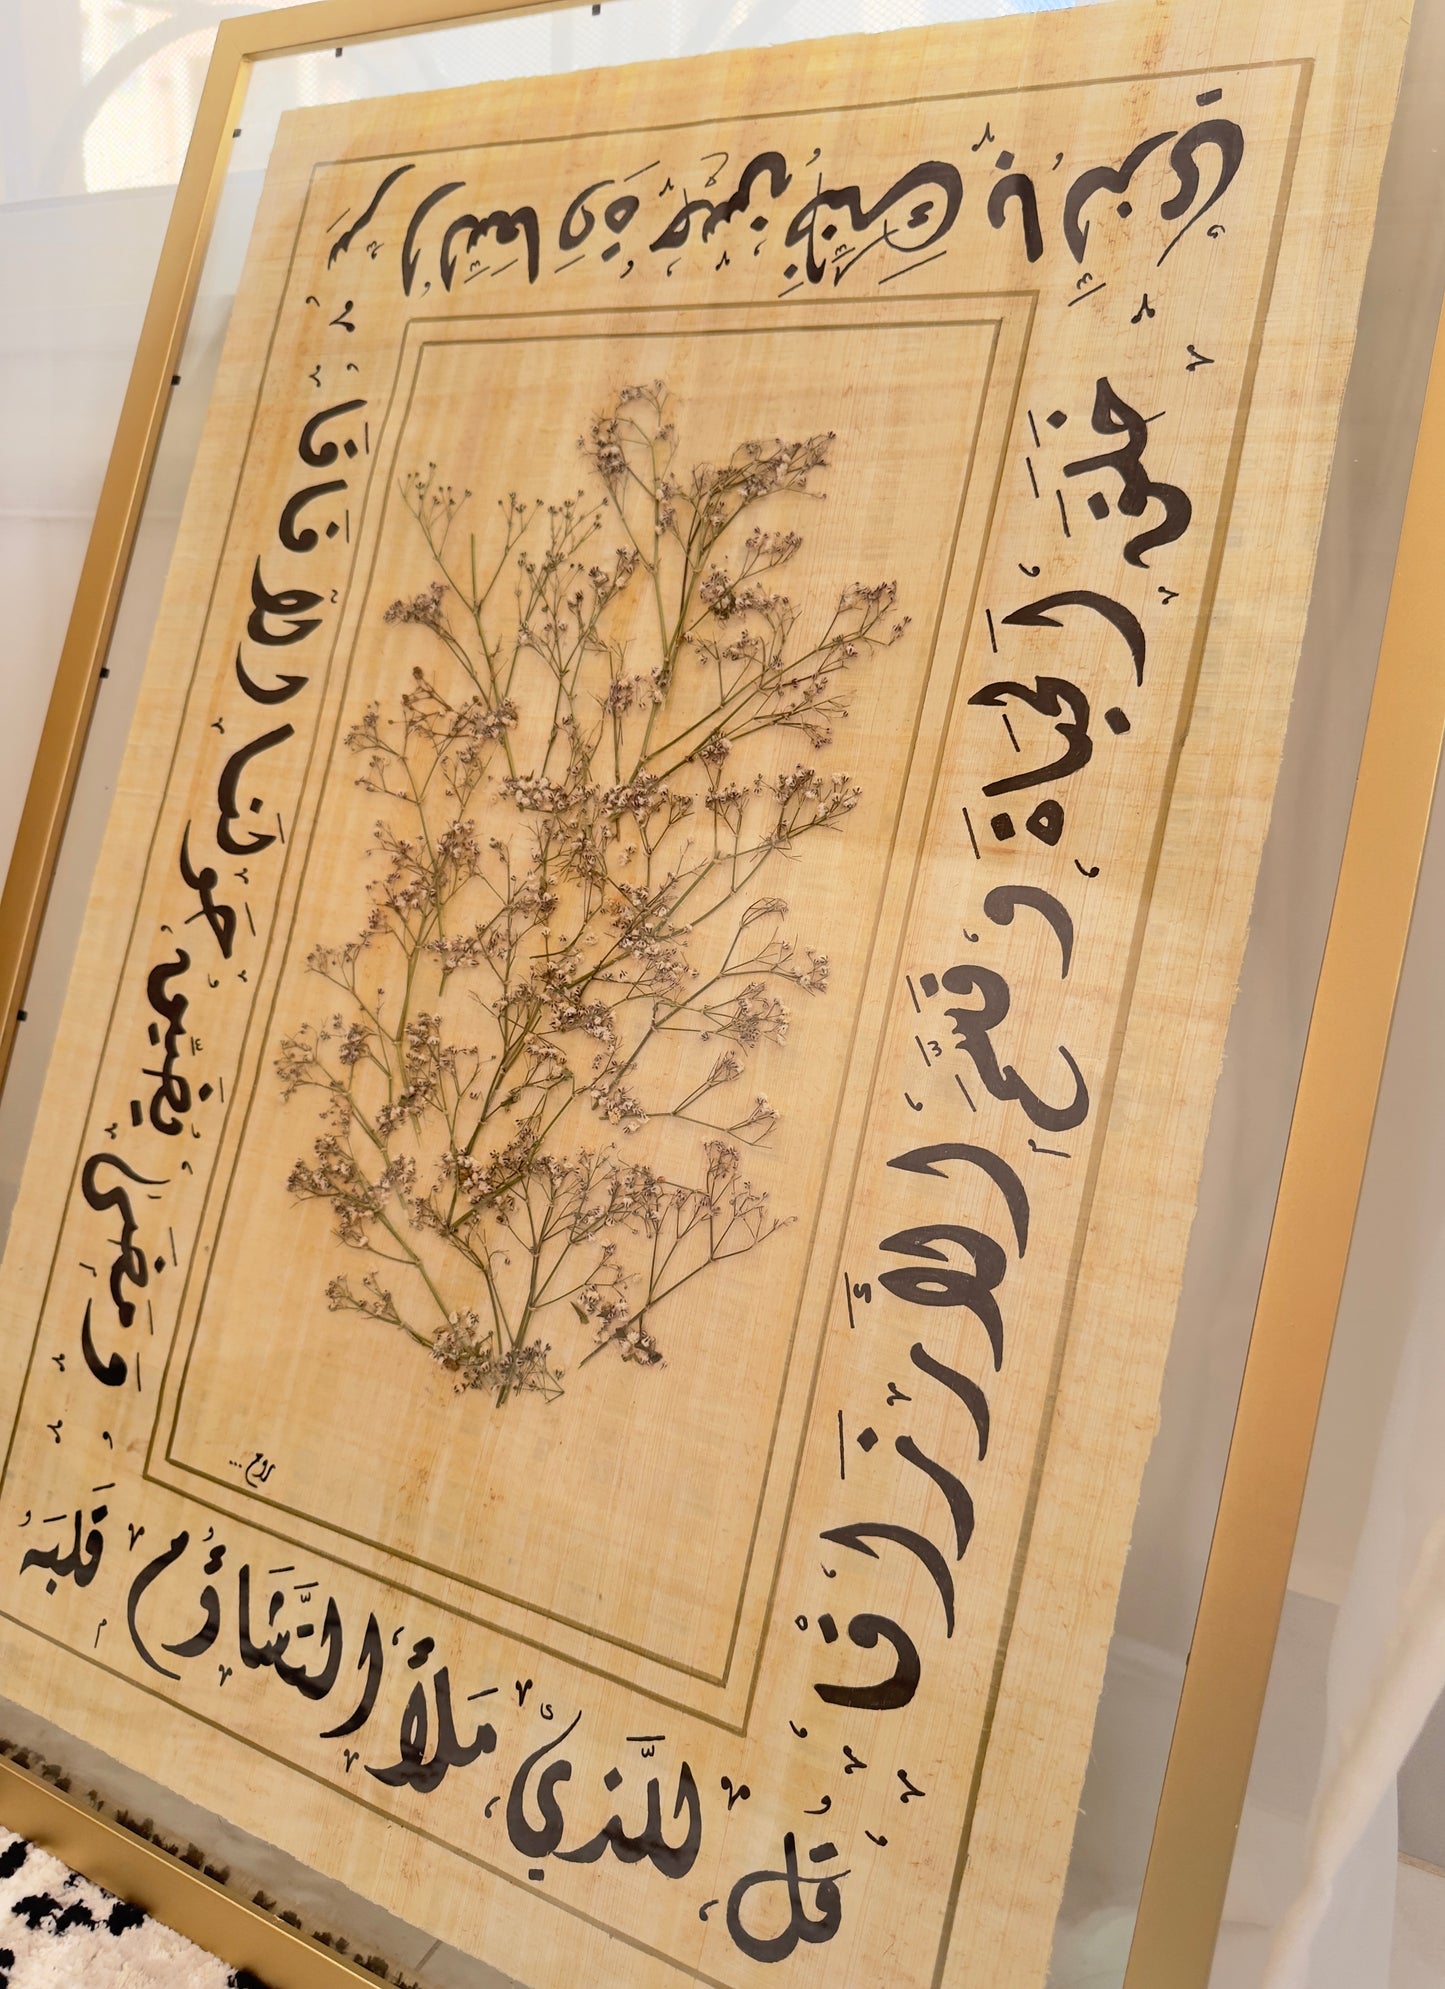 قُل لِلَّذي مَلَأَ التَّشَاؤُم قَلبَهُ
وَمَضىٰ يُضَيِّقُ حَولَنا الآفَاقَا
سِرُّ السَّعَادَةِ حُسْنُ ظَنِّكَ بِالَّذِي
خَلَقَ الحَيَاةَ وَقَسَّمَ الأَرزَاقَا